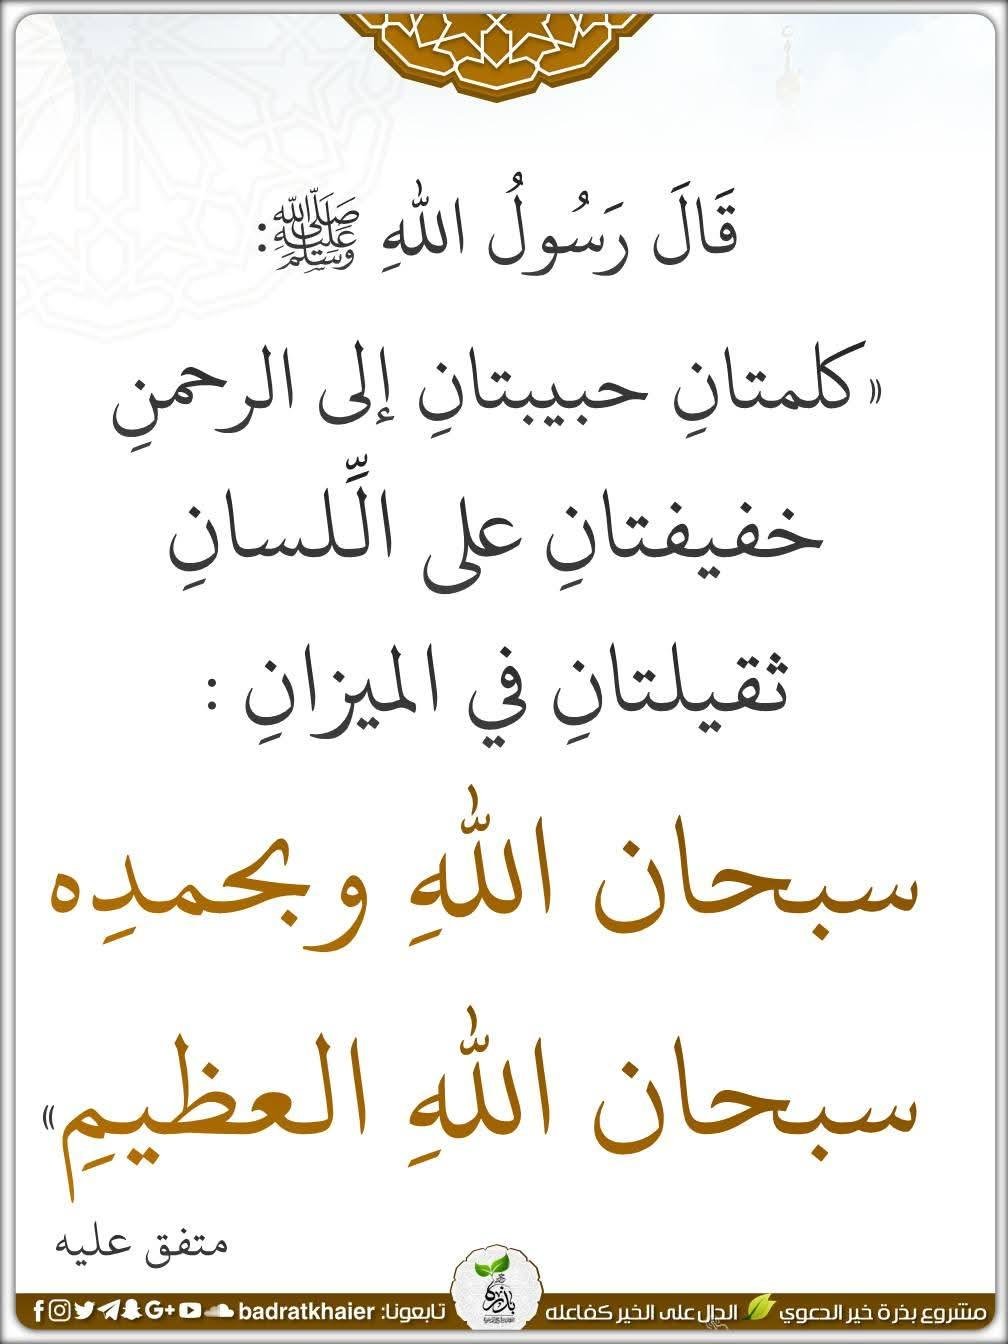 قَالَ رَسُولُ اللهِ ﷺ:
«كلمتانِ حبيبتانِ إلى الرحمنِ
خفيفتانِ على الِّلسانِ
ثقيلتانِ في الميزانِ :
سبحان اللهِ وبحمدِه
سبحان اللهِ العظيمِ»
متفق عليه
مشروع بذرة خير الدعوي الدال على الخير كفاعله بذرة تابعونا: badratkhaier